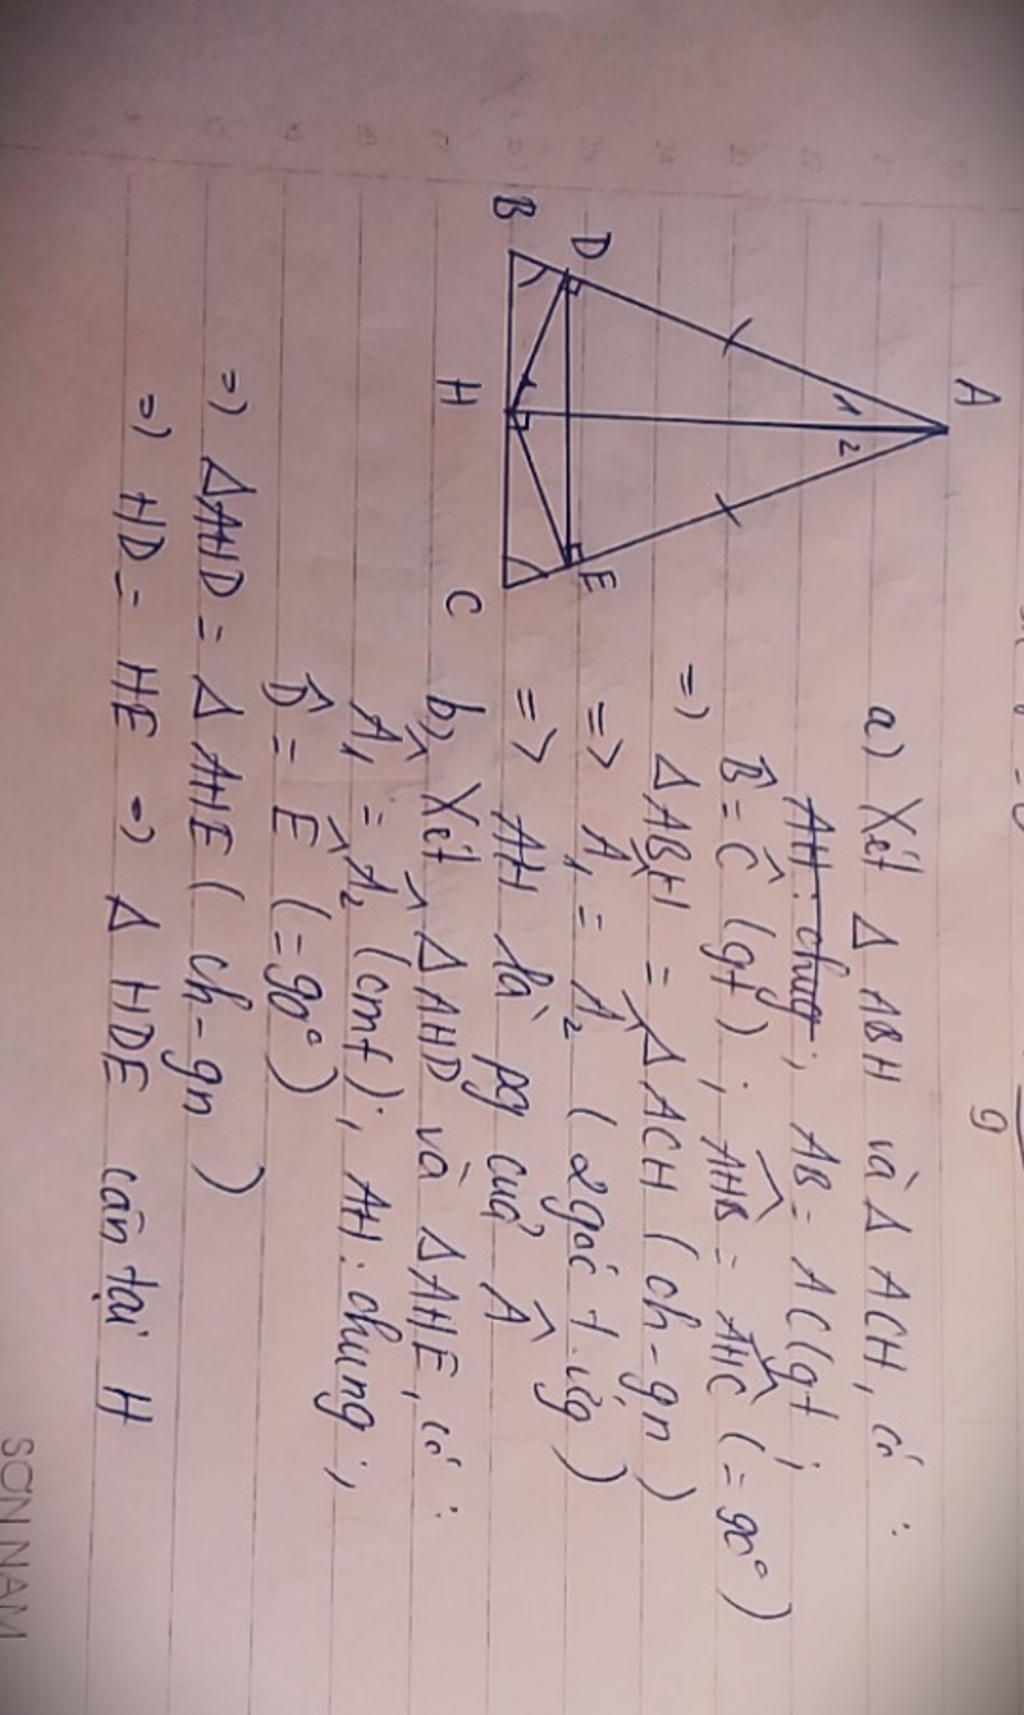 9
A
1 2
D
E
B
H
C
a) Xét Δ ABH và Δ ACH, có :
AH: chug; AB = AC (gt) ;
B̂ = Ĉ (gt) ; AHB = AHC (= 90°)
=> Δ ABH = Δ ACH (ch - gn)
=> Â₁ = Â₂ (2 góc t.ứg)
=> AH là pg của Â
b, Xét Δ AHD và Δ AHE, có :
Â₁ = Â₂ (cmt) ; AH : chung ;
D̂ = Ê (= 90°)
=> Δ AHD = Δ AHE (ch - gn)
=> HD = HE => Δ HDE cân tại H
SƠN NAM